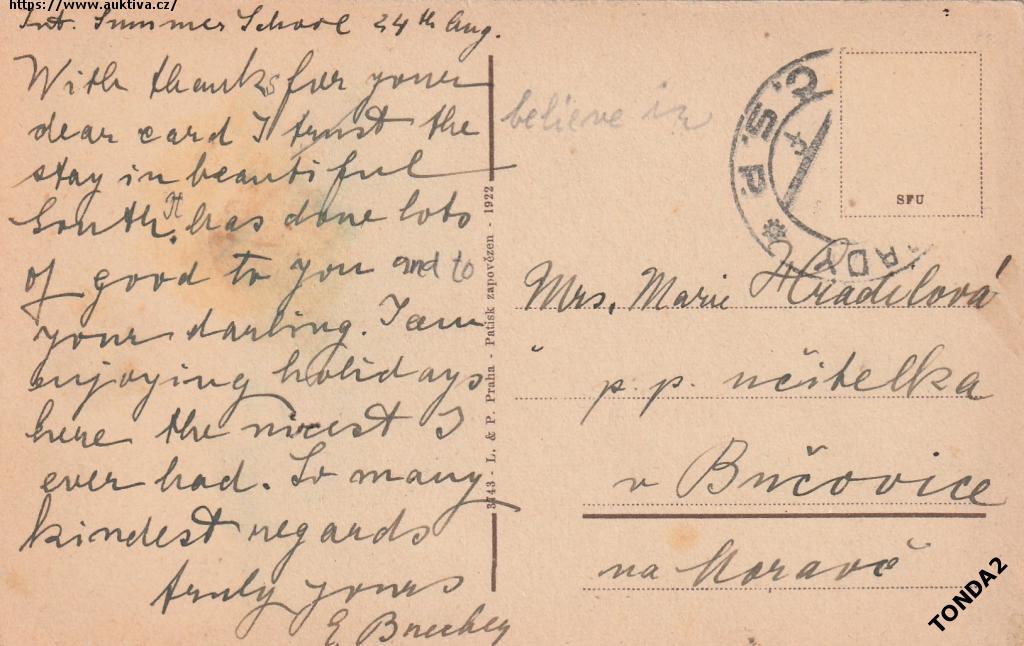 https://www.auktiva.cz/
Int. Summer School 24th Aug.
With thanks for your
dear card I trust the
stay in beautiful
South. It has done lots
of good to you and to
your darling. I am
enjoying holidays
here the nicest I
ever had. So many
kindest regards
truly yours
E.
believe in
3743 - L. & P. Praha - Patisk zapovězen - 1922
SFU
Mrs. Marie Hradilová
p. p. učitelka
v Bučovice
na Moravě
TONDA2